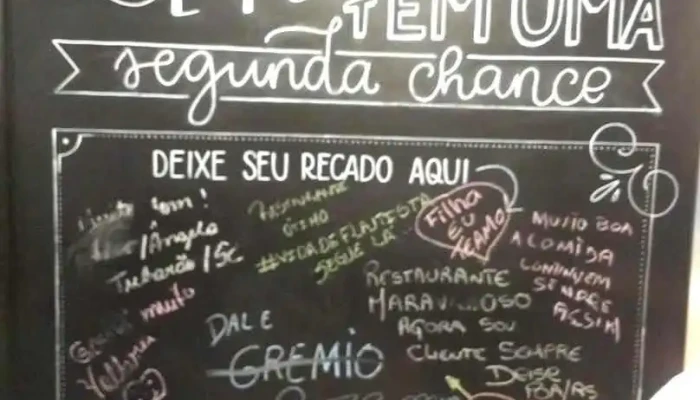 TEM UMA
segunda chance
DEIXE SEU RECADO AQUI
Muito bom!
/Ângelo
Tubarão/SC
RESTAURANTE
ÓTIMO
#VIDADEFLANTISTA
SEGUE LÁ
Filha
EU
TE AMO
MUITO BOA
A COMIDA
CONTINUEM
SEMPRE
ASSIM
RESTAURANTE
MARAVILHOSO
AGORA SOU
CLIENTE SEMPRE
DEISE
POA/RS
muito
DALE
GREMIO